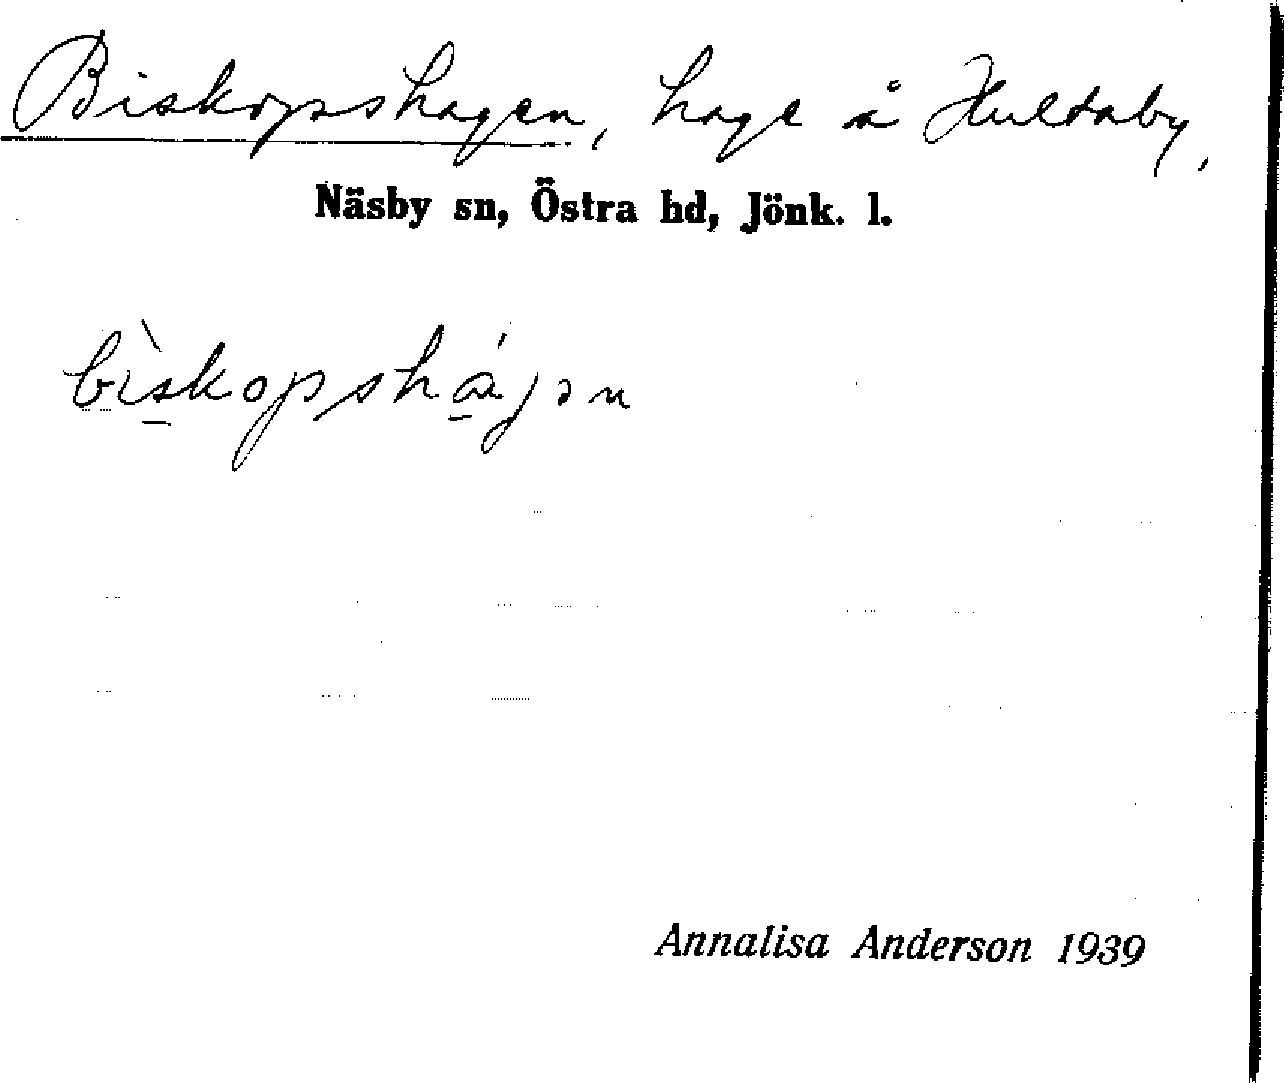 Biskopshagen, hage å Hultaby,
Näsby sn, Östra hd, Jönk. l.
bìskopshájən
Annalisa Anderson 1939